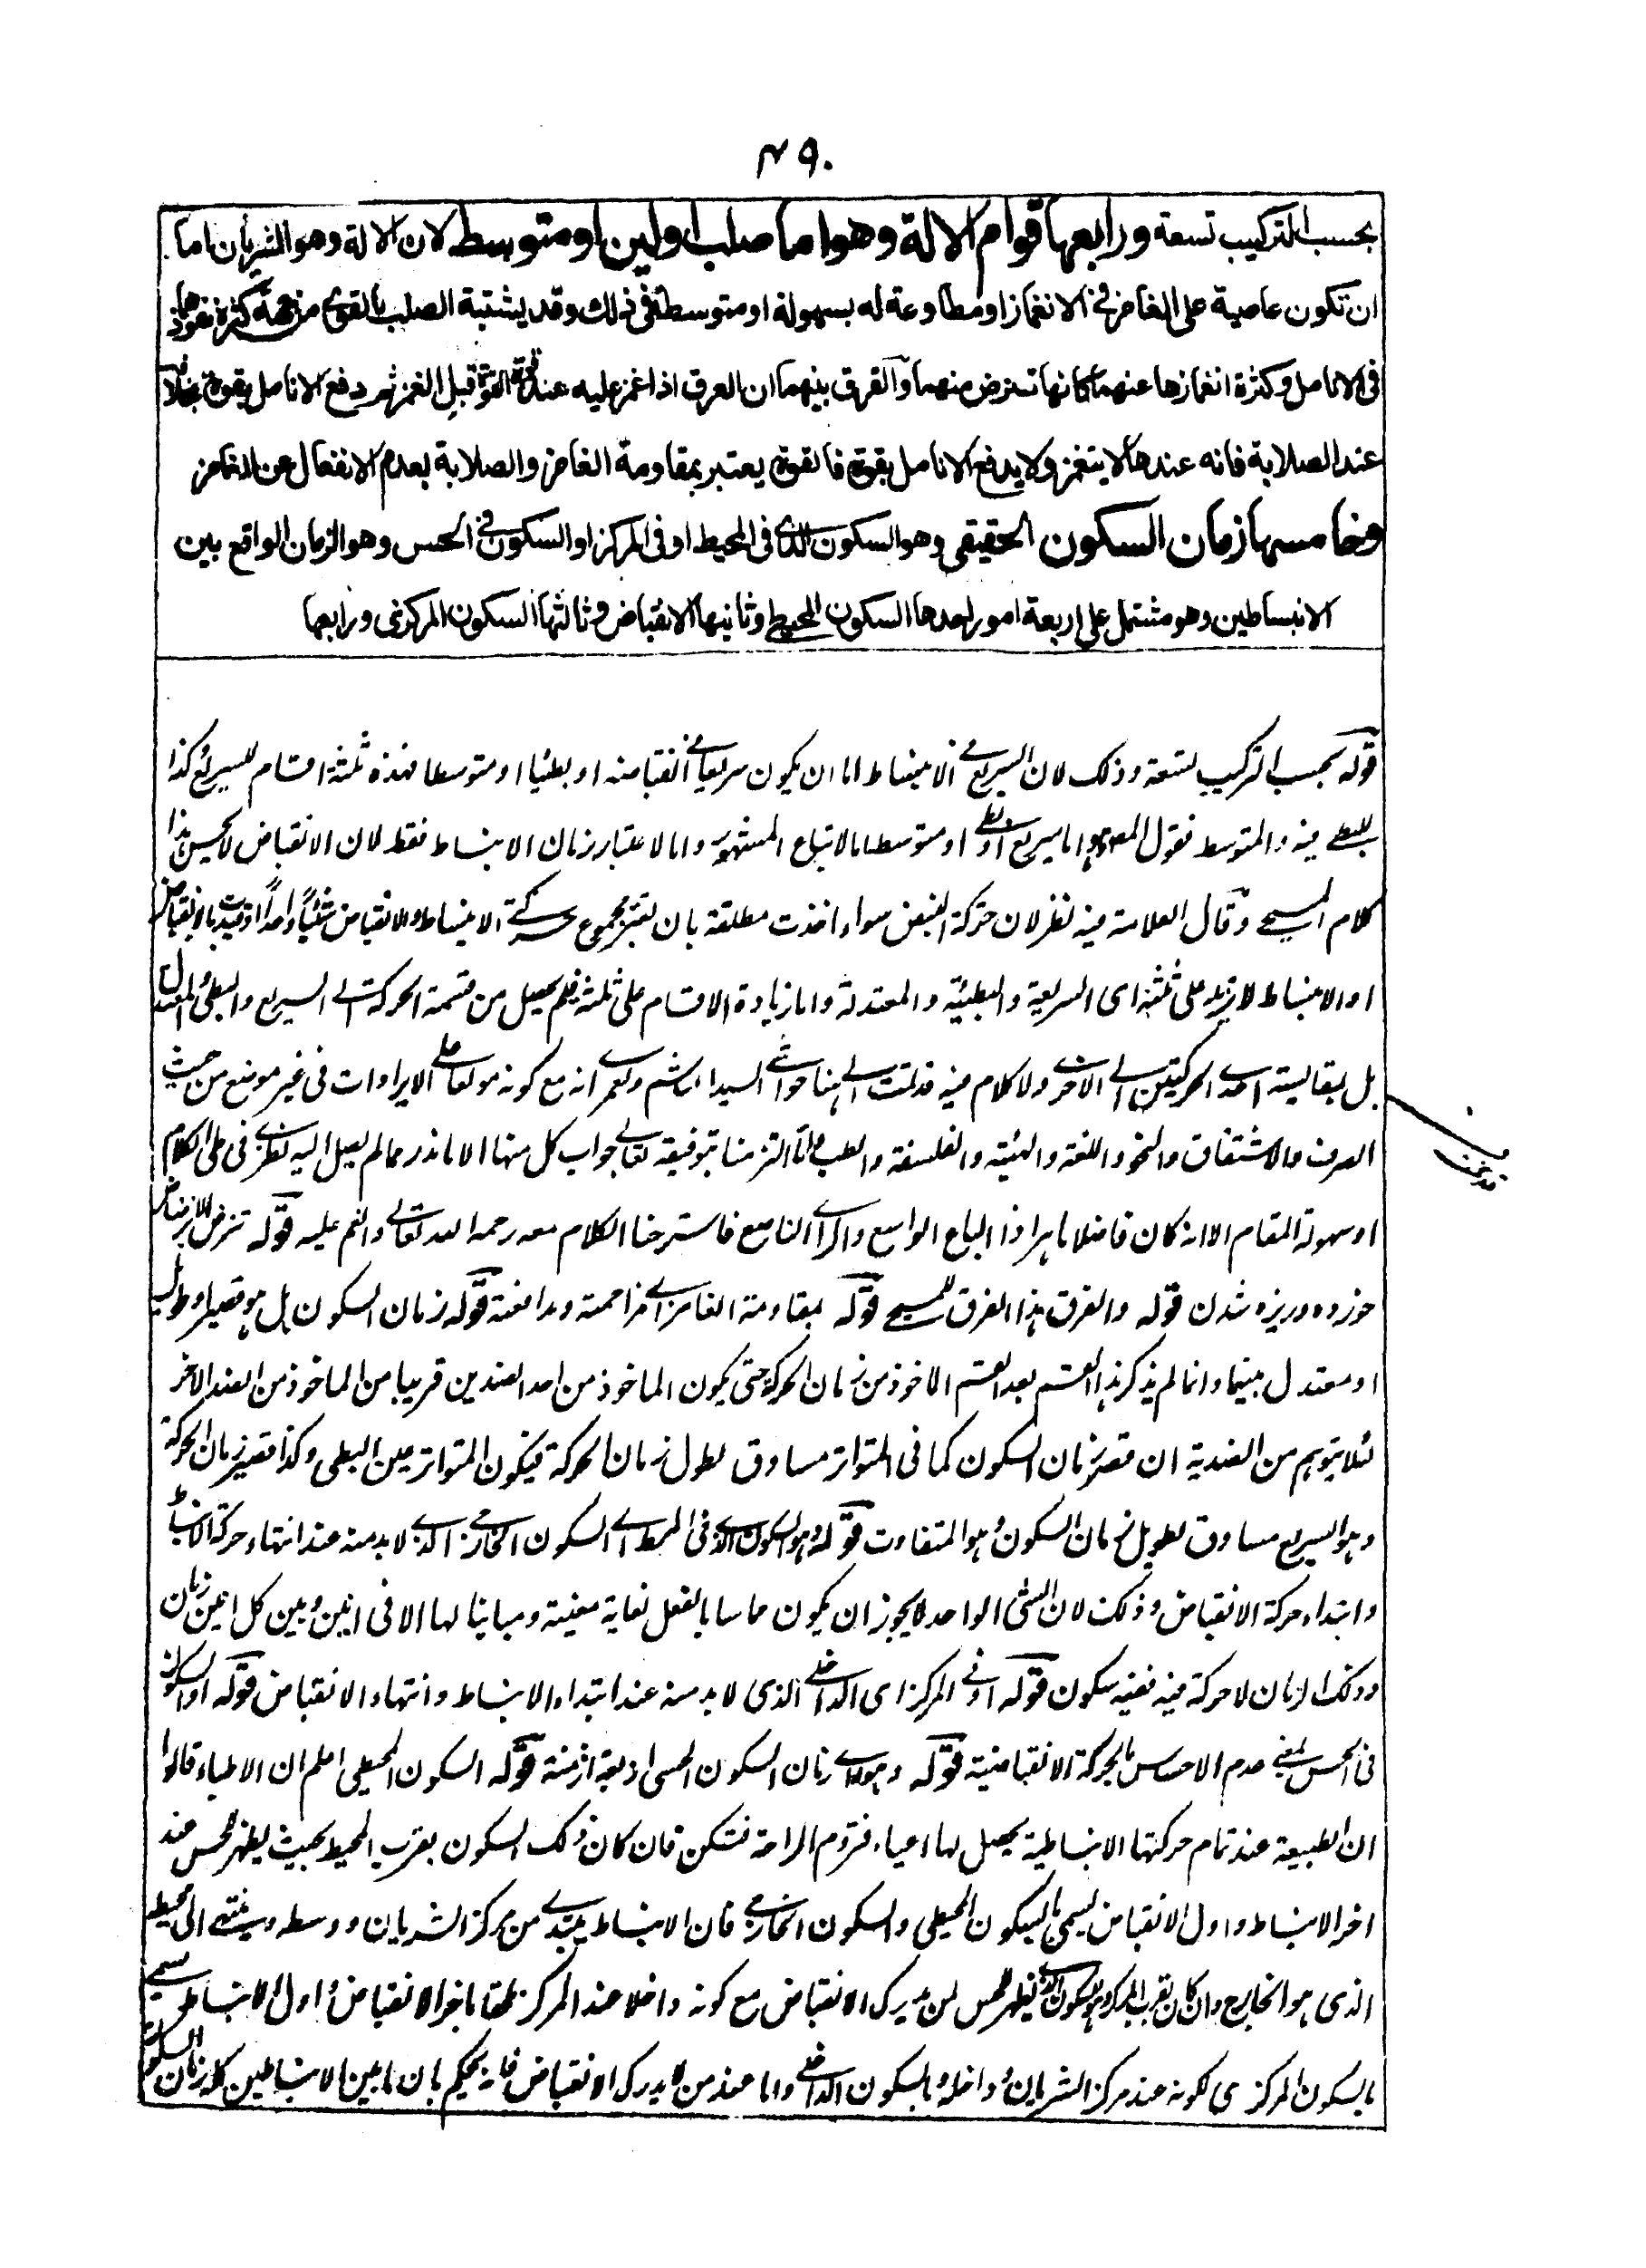 ٤٩٠
بحسب التركيب تسعة ورابعها قوام الالة وهو اما صلب او لين او متوسط لان الالة وهو الشريان اما
ان تكون عاصية على الغامز فى الانغماز او مطاوعة له بسهولة او متوسطة فى ذلك وقد يشتبة الصلب بالقوى من جهة كثرة نفوذها
فى الانامل وكثرة انغمازها عنهما كانها تنرض منهما والفرق بينهما ان العرق اذا غمز عليه عند القوة قبل الغمز ثم دفع الانامل بقوة بخلاف
عند الصلابة فانه عندها لا ينغمز ولا يدفع الانامل بقوة فالقوة يعتبر بمقاومة الغامز والصلابة بعدم الانفعال عن الغامز
وخامسها زمان السكون الحقيقى وهو السكون الذى فى المحيط او فى المركز او السكون فى الحس وهو الزمان الواقع بين
الانبساطين وهو مشتمل على اربعة امور احدها السكون المحيطى وثانيها الانقباض وثالثها السكون المركزى ورابعها
قوله بحسب التركيب تسعة وذلك لان السريع فى الانبساط اما ان يكون سريعا فى انقباضه او بطيئا او متوسطا فهذه ثلثة اقسام للسريع وكذا
للبطى فيه والمتوسط فقول المص وهو اما سريع او بطى او متوسط اما لاتباع المشهور واما لاعتبار زمان الانبساط فقط لان الانقباض لا يحس هذا
كلام المسيحى وقال العلامة فيه نظر لان حركة النبض سواء اخذت مطلقة بان يعتبر مجموع حركتى الانبساط والانقباض شيئا واحدا او قيدت بالانقباض
او الانبساط لا تزيد على ثلثة اى السريعة والبطيئة والمعتدلة واما زيادة الاقسام على ثلثة فلم يحصل من قسمة الحركة الى السريع والبطى والمعتدل
بل بمقايسة احدى الحركتين الى الاخرى ولا كلام فيه قد تمت الى هنا حواشى السيد الهاشم ولعمرى انه مع كونه مولعا على الايرادات فى غير موضع من حيث
الصرف والاشتقاق والنحو واللغة والهيئة والفلسفة والطب وانا التزمنا بتوفيقه تعالى جواب كل منها الا ما ندر مما لم يصل اليه نظرى فى طى الكلام
او سهولة المقام الا انه كان فاضلا ماهرا ذا الباع الواسع والراى الناصع فاسترحنا الكلام معه رحمه الله تعالى وانعم عليه قوله تنرض الانرضاض
خورده وريزه شدن قوله والفرق هذا الفرق للمسيحى قوله بمقاومة الغامز اى مزاحمته ومدافعته قوله زمان السكون بل هو قصير او طويل
او معتدل بينهما وانما لم يذكر هذا القسم بعد القسم الماخوذ من زمان الحركة حتى يكون الماخوذ من احد الضدين قريبا من الماخوذ من الضد الاخر
لئلا يتوهم من الضدية ان قصر زمان السكون كما فى المتواتر مساوق لطول زمان الحركة فيكون المتواتر عين البطى وكذا قصير زمان الحركة
وهو السريع مساوق لطويل زمان السكون وهو المتفاوت قوله وهو السكون الذى فى المحيط اى السكون الخارجى الذى لا بد منه عند انتهاء حركة الانبساط
وابتداء حركة الانقباض وذلك لان الشى الواحد لا يجوز ان يكون مماسا بالفعل لغاية معينة ومباينا لها الا فى انين وبين كل انين زمان
وذلك الزمان لا حركة فيه ففيه سكون قوله او فى المركز اى الداخلى الذى لا بد منه عند ابتداء الانبساط وانتهاء الانقباض قوله او السكون
فى الحس لمعنى عدم الاحساس بالحركة الانقباضية قوله وهو اى زمان السكون الحسى اربعة ازمنة قوله السكون المحيطى اعلم ان الاطباء قالوا
ان الطبيعة عند تمام حركتها الانبساطية يحصل لها اعياء فتروم الراحة فتسكن فان كان ذلك السكون بقرب المحيط بحيث يظهر للحس عند
اخر الانبساط واول الانقباض يسمى بالسكون المحيطى والسكون الخارجى فان الانبساط يبتدى من مركز الشريان ووسطه وينتهى الى محيطه
الذى هو الخارج وان كان بقرب المركز وهو السكون الذى يظهر لحس لمن يدرك الانقباض مع كونه داخلا عند المركز ملتقا باخر الانقباض واول الانبساط يسمى
بالسكون المركزى لكونه عند مركز الشريان وداخله بالسكون الداخلى واما عند من لا يدرك الانقباض فانه يحكم بان ما بين الانبساطين كله زمان السكون